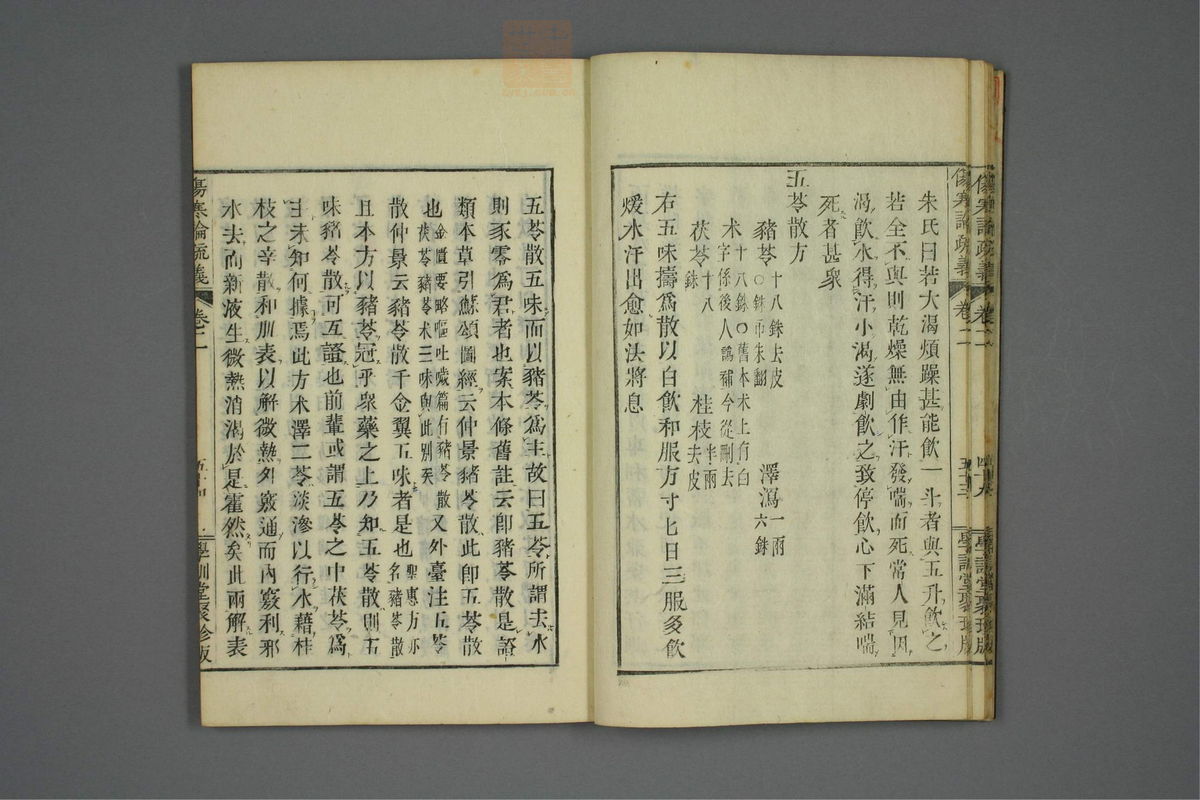 傷寒論疏義
卷二
學訓堂聚珍版
傷寒論疏義
卷二
五十三
學訓堂聚珍版
朱氏曰若大渴煩躁甚能飲一斗者與五升飲之
若全不與則乾燥無由作汗發喘而死常人見因
渴飲水得汗小渴遂劇飲之致停飲心下滿結喘
死者甚衆
五苓散方
豬苓十八銖去皮〇銖而朱翻 澤瀉一兩六銖
朮十八銖〇舊本朮上有白字係後人譌補今從刪去 桂枝半兩去皮
茯苓十八銖
右五味擣爲散以白飲和服方寸匕日三服多飲
煖水汗出愈如法將息
五苓散五味而以豬苓爲主故曰五苓所謂去水
則豕零爲君者也案本條舊註云卽豬苓散是證
類本草引蘇頌圖經云仲景豬苓散此卽五苓散
也金匱要略嘔吐噦篇有豬苓散茯苓豬苓朮三味與此別矣又外臺注五苓
散仲景云豬苓散千金翼五味者是也聖惠方亦名豬苓散
且本方以豬苓冠乎衆藥之上乃知五苓散則五
味豬苓散可互證也前輩或謂五苓之中茯苓爲
主未知何據焉此方朮澤二苓淡滲以行水藉桂
枝之辛散和肌表以解微熱外竅通而內竅利邪
水去而新液生微熱消渴於是霍然矣此兩解表
傷寒論疏義
卷二
五十四
學訓堂聚珍版